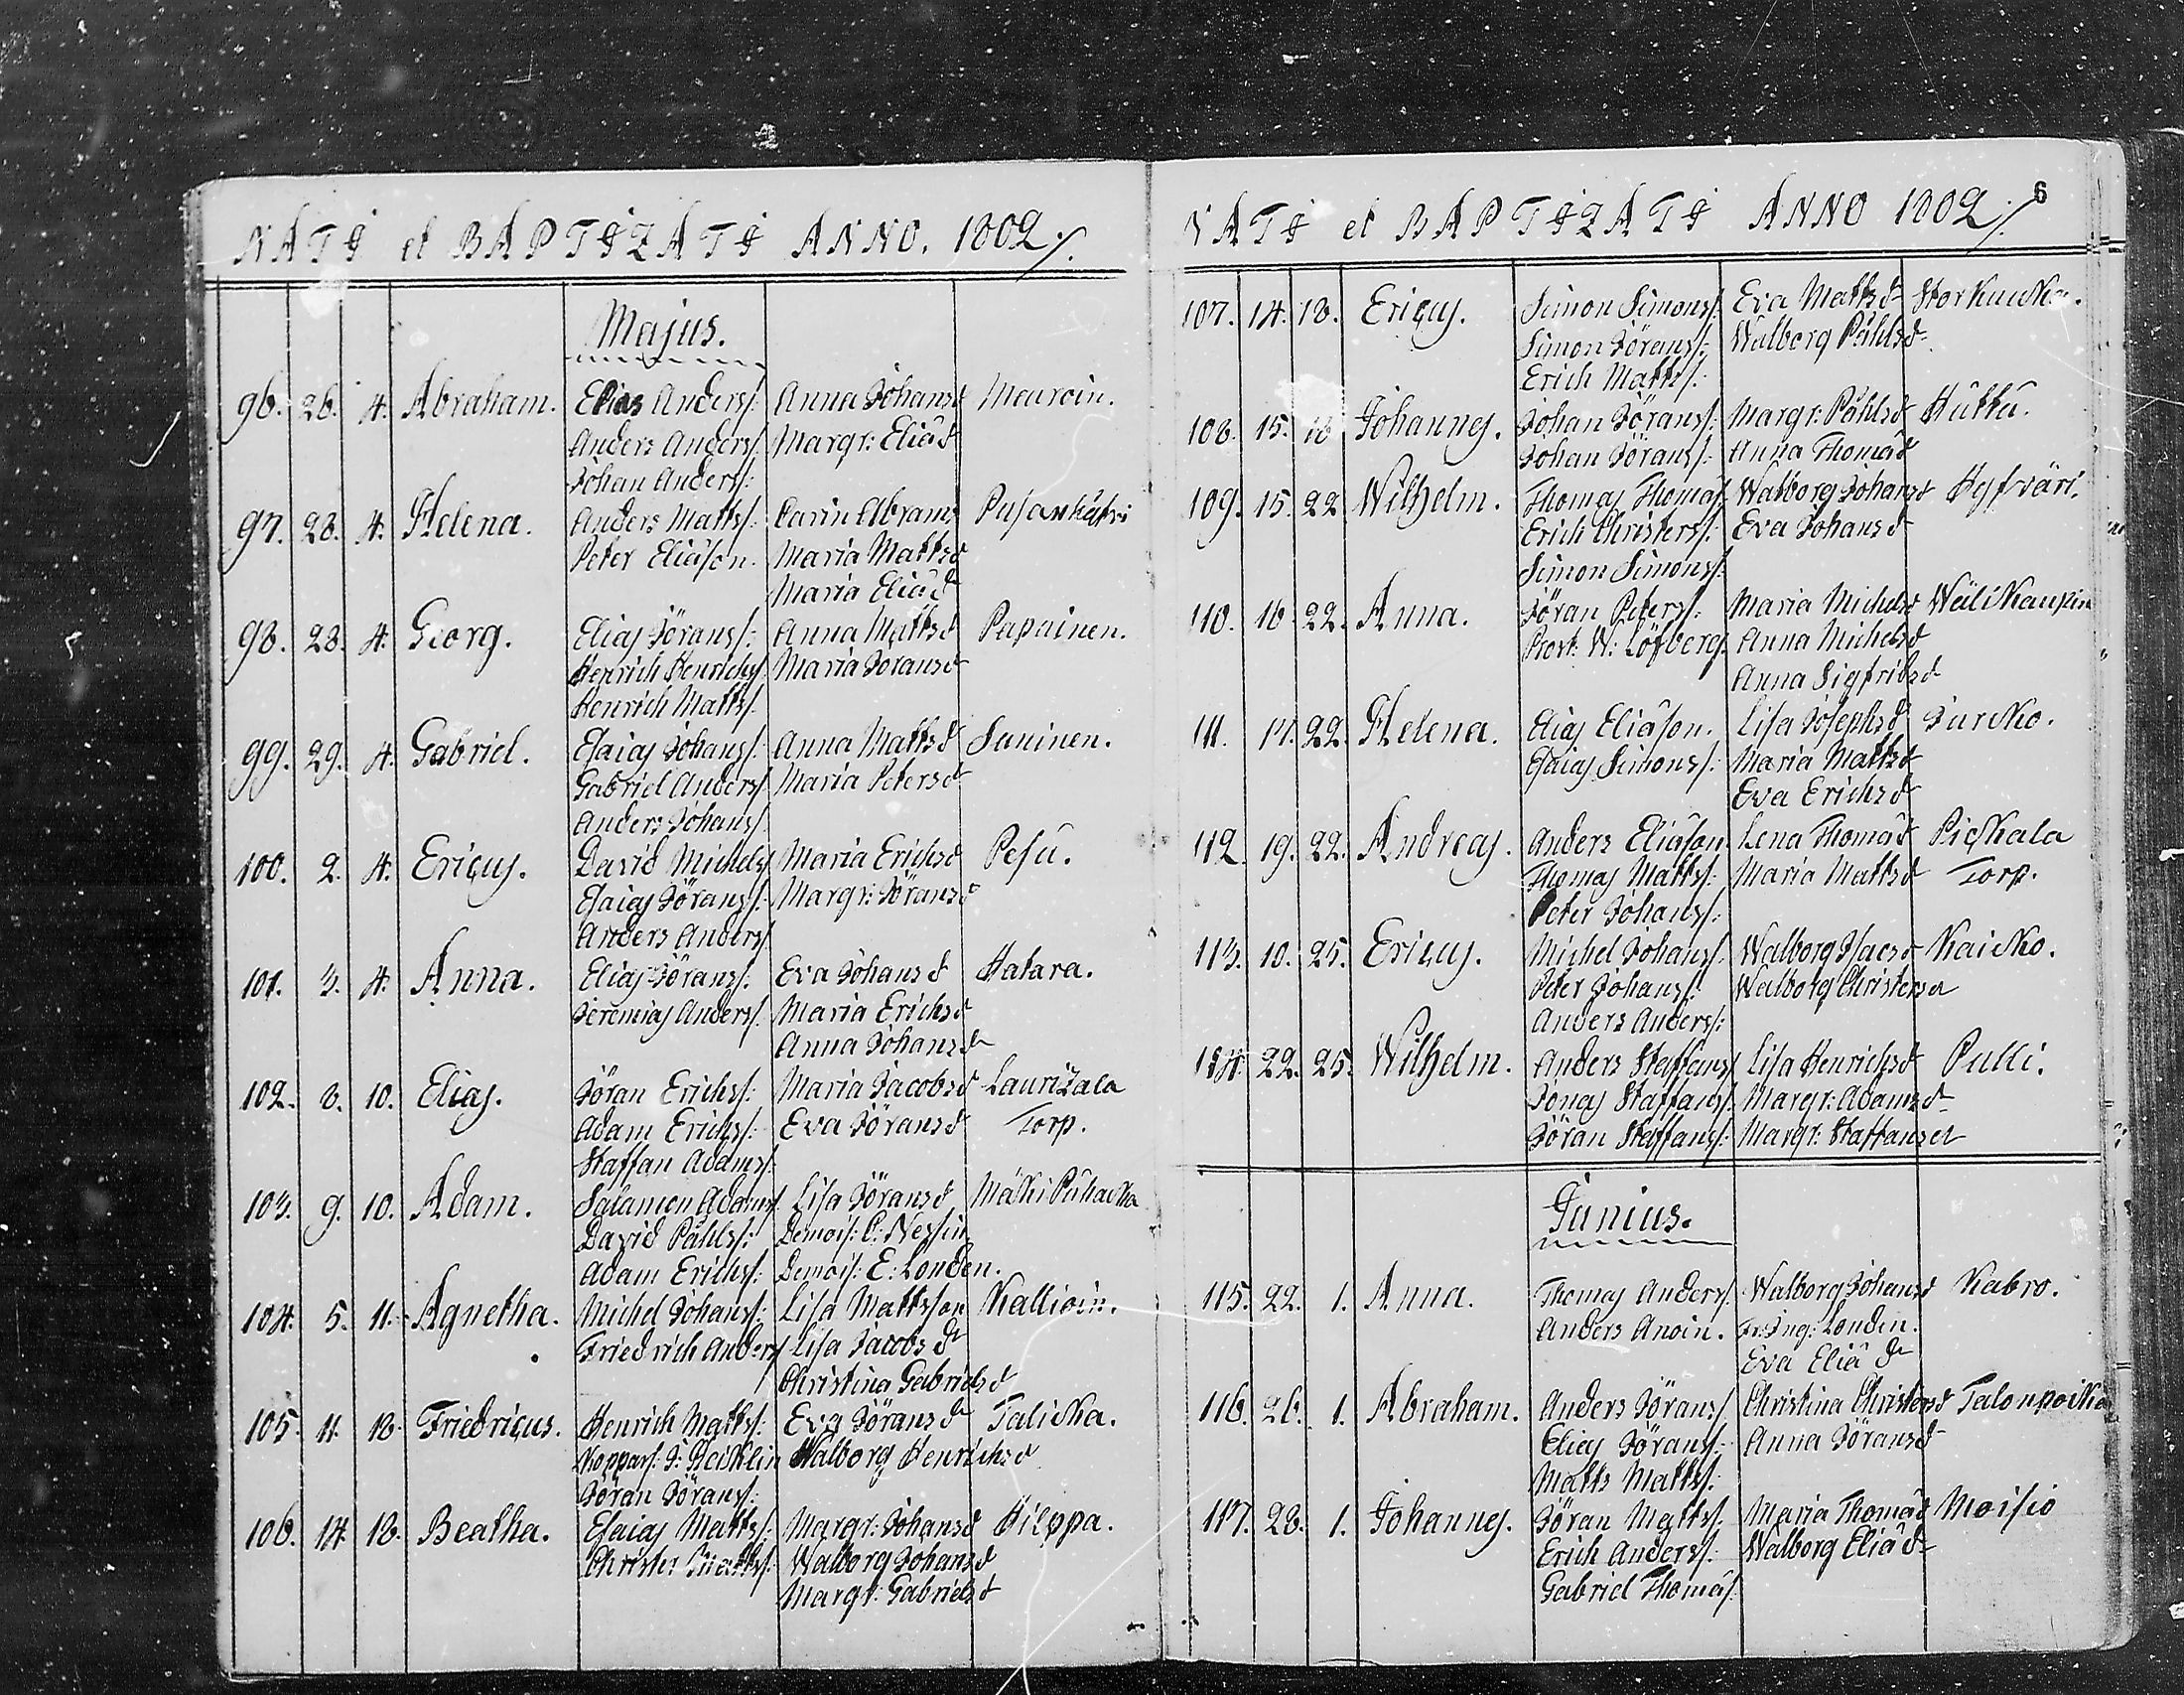 NATI et BAPTIZATI ANNO. 1802 ./.
Majus.
96. 26. 4. Abraham. Elias Anders/: Anna Johansd Mauroin.
Anders Anders/: Margr: Eliæd
Johan Anders/:
97. 28. 4. Helena. Anders Matts/: Carin Abrams
Peter Eliæson. Maria Mattsd
Maria Eliæd
98. 28. 4. Georg. Elias Jörans/: Anna Mattsd Papainen.
Henrich Henrichs/ Maria Joransd
Henrich Matts/.
99. 29. 4. Gabriel. Esaias Johans/: Anna Mattsd Saninen.
Gabriel Anders/ Maria Petersd
Anders Johans/
100. 2. 4. Ericus. David Michels/ Maria Erichsd Pesu.
Esaias Jörans/: Margr: Jöransd
Anders Anders/
101. 3. 4. Anna. Elias Jörans/: Eva Johansd Hatara.
Jeremias Anders/. Maria Erichsd
Anna Johansd
102. 8. 10. Elias. Jöran Erichs/: Maria Jacobsd Laurizala
Adam Erichs/: Eva Jöransd Torp.
Staffan Adams/:
103. 9. 10. Adam. Salamon Adams/ Lisa Jöransd Mäki Puhacka
David Påhls/: Demois: C: Nessin
Adam Erichs/: Demois: E: Londen.
104. 5. 11. Agnetha. Michel Johans/: Lisa Mattsson Kallioin.
Friedrich Anders/ Lisa Jacobsd
Christina Gabrielsd
105. 11. 18. Friedricus. Henrich Matts/: Eva Jöransd Talicka.
Koppars: J: Walborg Henrichsd
Jöran Jörans/:
106. 14. 18. Beatha. Esaias Matts/: Margr: Johansd Hilppa.
Christer Matts/: Walborg Johansd
Margr: Gabrielsd
6
NATI et BAPTIZATI ANNO 1802 ./.
107. 14. 18. Ericus. Simon Simons/: Eva Mattsd Storkuicka.
Simon Jörans/: Walborg Påhlsd
Erich Matts/:
108. 15. 18 Johannes. Johan Jörans/: Margr: Påhlsd Huttu.
Johan Jörans/: Anna Thomæd
109. 15. 22 Wilhelm. Thomas Thomæs/ Walborg Johansd Hyfväri.
Erich Christers/: Eva Johansd
Simon Simons/:
110. 16. 22. Anna. Jöran Peters/: Maria Michelsd Wälikaupin
Prost: W: Löfberg. Anna Michelsd
Anna Sigfridsd
111. 17. 22. Helena. Elias Eliæson. Lisa Josephsd Jurcko.
Esaias Simons/: Maria Mattsd
Eva Erichsd
112. 19. 22. Andreas. Anders Eliæson. Lena Thomæd Pickala
Thomas Matts/: Maria Mattsd Torp.
Peter Johans/:
113. 10. 25. Ericus. Michel Johans/. Walborg Isacsd Kaicko.
Peter Johans/: Walborg Christersd
Anders Anders/:
114. 22. 25. Wilhelm. Anders Staffans/ Lisa Henrichsd Pulli.
Jonas Staffans/. Margr: Adamsd
Jöran Staffans/: Margr: Staffansd
Junius.
115. 22. 1. Anna. Thomas Anders/. Walborg Johansd Kabro.
Anders Anoin. Fr: Ing: Londen.
Eva Eliæd
116. 26. 1. Abraham. Anders Jörans/ Christina Christersd Talonpoika
Elias Jörans/: Anna Jöransd
Matts Matts/:
117. 28. 1. Johannes. Jöran Matts/. Maria Thomæd Moisio
Erich Anders/: Walborg Eliæd
Gabriel Thomæs/